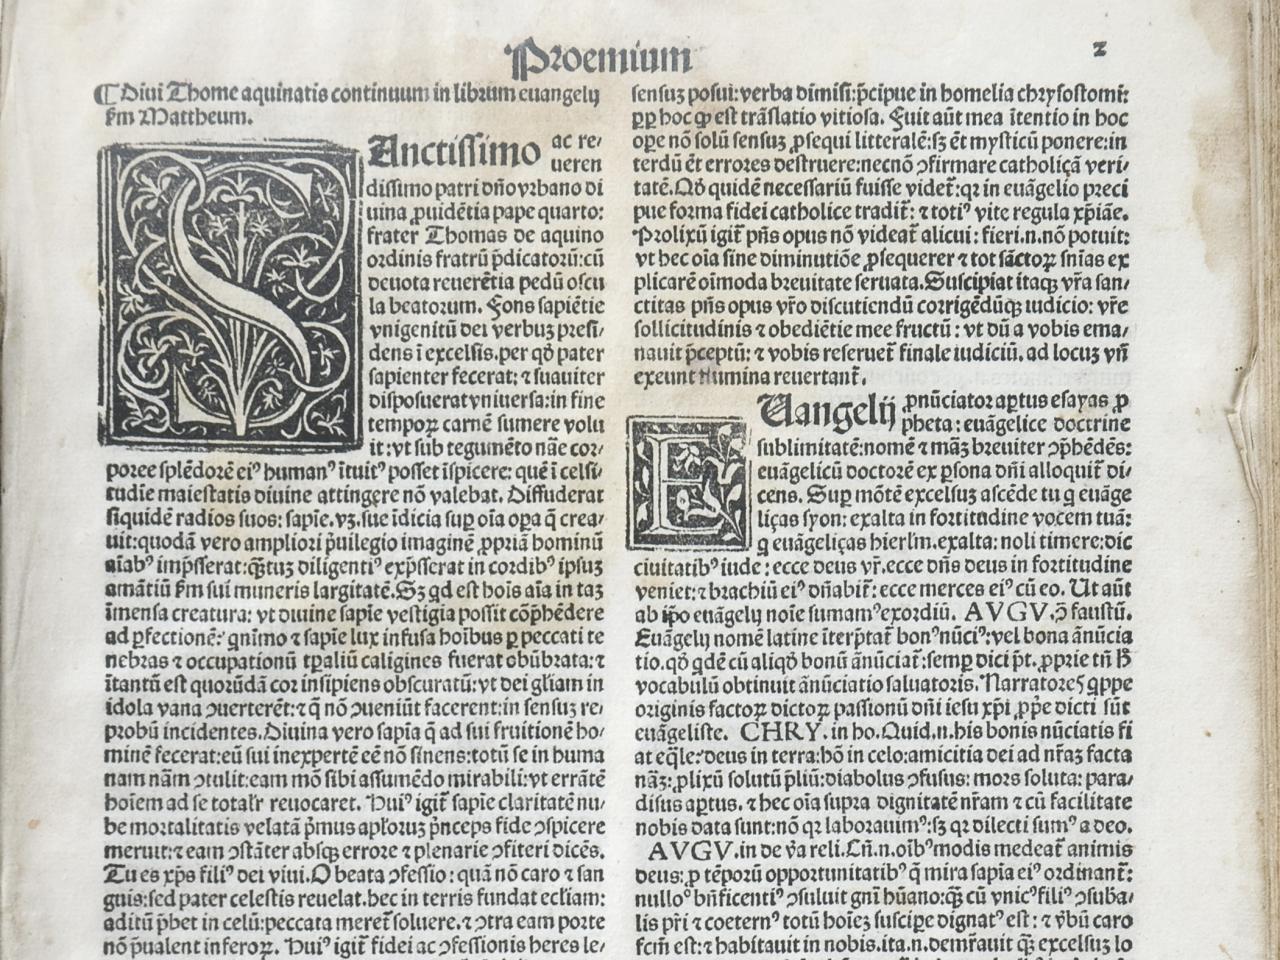 Proemium
2
¶ Diui Thome aquinatis continuum in librum euangelij
ẜm Mattheum.
SAnctissimo ac re/
ueren
dissimo patri dño vrbano di
uina ꝓuidẽtia pape quarto:
frater Thomas de aquino
ordinis fratrũ p̃dicatorũ: cũ
deuota reuerẽtia pedũ oscu
la beatorum. Fons sapiẽtie
vnigenitũ dei verbuʒ presi/
dens ĩ excelsis. per qđ pater
sapienter fecerat: ⁊ suauiter
disposuerat vniuersa: in fine
tempoꝝ carnẽ sumere volu
it: vt sub tegumẽto nãe cor/
poree splẽdorẽ eiꝰ humanꝰ ĩtuitꝰ posset ĩspicere: quẽ ĩ celsi/
tudĩe maiestatis diuine attingere nõ valebat. Diffuderat
siquidẽ radios suos: sapĩe. vʒ. sue ĩdicia sup oĩa oꝑa q̃ crea/
uit: quodã vero ampliori p̃uilegio imaginẽ ꝓpriã hominũ
aĩabꝰ imp̃sserat: q̃ʒtuʒ diligentiꝰ exp̃sserat in cordibꝰ ipsuʒ
amãtiũ ẜm sui muneris largitatẽ. Sʒ qd est hoĩs aĩa in taʒ
ĩmensa creatura: vt diuine sapĩe vestigia possit cõp̃hẽdere
ad ꝑfectionẽ: qnĩmo ⁊ sapĩe lux infusa hoĩbus ꝑ peccati te
nebras ⁊ occupationũ tꝑaliũ caligines fuerat obũbrata: ⁊
ĩtantũ est quorũdã cor insipiens obscuratũ: vt dei gl̃iam in
idola vana ↄuerterẽt: ⁊ q̃ nõ ↄueniũt facerent: in sensuʒ re/
probũ incidentes. Diuina vero sapĩa q̃ ad sui fruitionẽ ho/
minẽ fecerat: eũ sui inexpertẽ eẽ nõ sinens: totũ se in huma
nam nãm ↄtulit: eam mõ sibi assumẽdo mirabili: vt errãtẽ
hoĩem ad se totalr̃ reuocaret. Huiꝰ igit̃ sapĩe claritatẽ nu/
be mortalitatis velatã p̃mus apl̃oruʒ p̃nceps fide ↄspicere
meruit: ⁊ eam ↄstãter absqʒ errore ⁊ plenarie ↄfiteri dicẽs.
Tu es xp̃s filiꝰ dei viui. O beata ↄfessio: quã nõ caro ⁊ san
guis: sed pater celestis reuelat. hec in terris fundat eccl̃iam:
aditũ p̃bet in celũ: peccata meret̃ soluere. ⁊ ↄtra eam porte
nõ p̃ualent inferoꝝ. Huiꝰ igit̃ fidei ac ↄfessionis heres le/
sensuʒ posui: verba dimisi: p̃cipue in homelia chrysostomi:
ꝓꝑ hoc ꝙ est trãslatio vitiosa. Fuit aũt mea ĩtentio in hoc
oꝑe nõ solũ sensuʒ ꝓsequi litteralẽ: sʒ ẽt mysticũ ponere: in
terdũ ẽt errores destruere: necnõ ↄfirmare catholicã veri/
tatẽ. Qđ quidẽ necessariũ fuisse videt̃: qr in euãgelio preci
pue forma fidei catholice tradit̃: ⁊ totiꝰ vite regula xp̃iãe.
Prolixũ igit̃ pñs opus nõ videat̃ alicui: fieri. n. nõ potuit:
vt hec oĩa sine diminutiõe ꝓsequerer ⁊ tot sãctoꝝ sñias ex
plicarẽ oĩmoda breuitate seruata. Suscipiat itaqʒ vr̃a san/
ctitas pñs opus vr̃o discutiendũ corrigẽdũqʒ iudicio: vr̃e
sollicitudinis ⁊ obediẽtie mee fructũ: vt dũ a vobis ema/
nauit p̃ceptũ: ⁊ vobis reseruet̃ finale iudiciũ. ad locuʒ vñ
exeunt flumina reuertant̃.
EUangelij ꝓnũciator aꝑtus esayas ꝓ
pheta: euãgelice doctrine
sublimitatẽ: nomẽ ⁊ mãʒ breuiter ↄp̃hẽdẽs:
euãgelicũ doctorẽ ex ꝑsona dñi alloquit̃ di/
cens. Sup mõtẽ excelsuʒ ascẽde tu q euãge
liças syon: exalta in fortitudine vocem tuã:
q euãgeliças hierl̃m. exalta: noli timere: dic
ciuitatibꝰ iude: ecce deus vr̃. ecce dñs deus in fortitudine
veniet: ⁊ brachiũ eiꝰ dñabit̃: ecce merces eiꝰ cũ eo. Ut aũt
ab ip̃o euãgelij noĩe sumamꝰ exordiũ. AVGV. ↄ̃ faustũ.
Euãgelij nomẽ latine ĩterp̃tat̃ bonꝰ nũciꝰ: vel bona ãnũcia
tio. qđ qdẽ cũ aliqđ bonũ ãnũciat̃: semp dici p̃t. ꝓprie tñ ħ
vocabulũ obtinuit ãnũciatio saluatoris. Narratores qppe
originis factoꝝ dictoꝝ passionũ dñi iesu xp̃i ꝓp̃e dicti sũt
euãgeliste. CHRY. in ho. Quid. n. his bonis nũciatis fi
at eq̃le: deus in terra: hõ in celo: amicitia dei ad nr̃aʒ facta
nãʒ: ꝓlixũ solutũ p̃liũ: diabolus ↄfusus: mors soluta: para/
disus aꝑtus. ⁊ hec oĩa supra dignitatẽ nr̃am ⁊ cũ facilitate
nobis data sunt: nõ qr laborauimꝰ: sʒ qr dilecti sumꝰ a deo.
AVGV. in de ṽa reli. Cũ. n. oĩbꝰ modis medeat̃ animis
deus: ꝓ tẽporũ opportunitatibꝰ q̃ mira sapĩa eiꝰ ordinant̃:
nulloꝰ bñficentiꝰ ↄsuluit gñi hũano: qʒ cũ vnicꝰ filiꝰ ↄsuba/
lis pr̃i ⁊ coeternꝰ totũ hoĩeʒ suscipe dignatꝰ est: ⁊ ṽbũ caro
fcm̃ est: ⁊ habitauit in nobis. ita. n. demr̃auit qʒ excelsuʒ lo